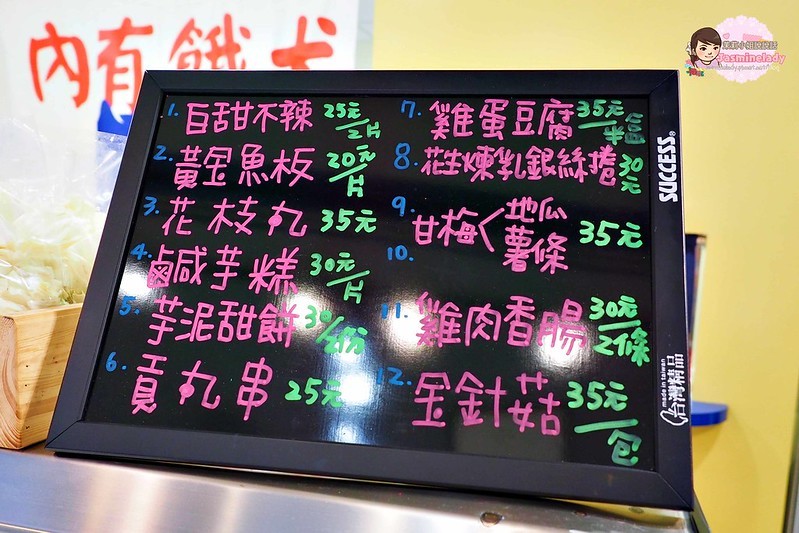 內有餓犬
1. 白甜不辣 25元/2片
2. 黃金魚板 20元/片
3. 花枝丸 35元
4. 鹹芋糕 30元/片
5. 芋泥甜餅 30/2份
6. 貢丸串 25元
7. 雞蛋豆腐 35元/半盒
8. 花生煉乳銀絲捲 30元
9. 甘梅 地瓜 35元
10. 薯條
11. 雞肉香腸 30元/2條
12. 金針菇 35元/包
SUCCESS®
made in taiwan
台灣精品
Jasminelady